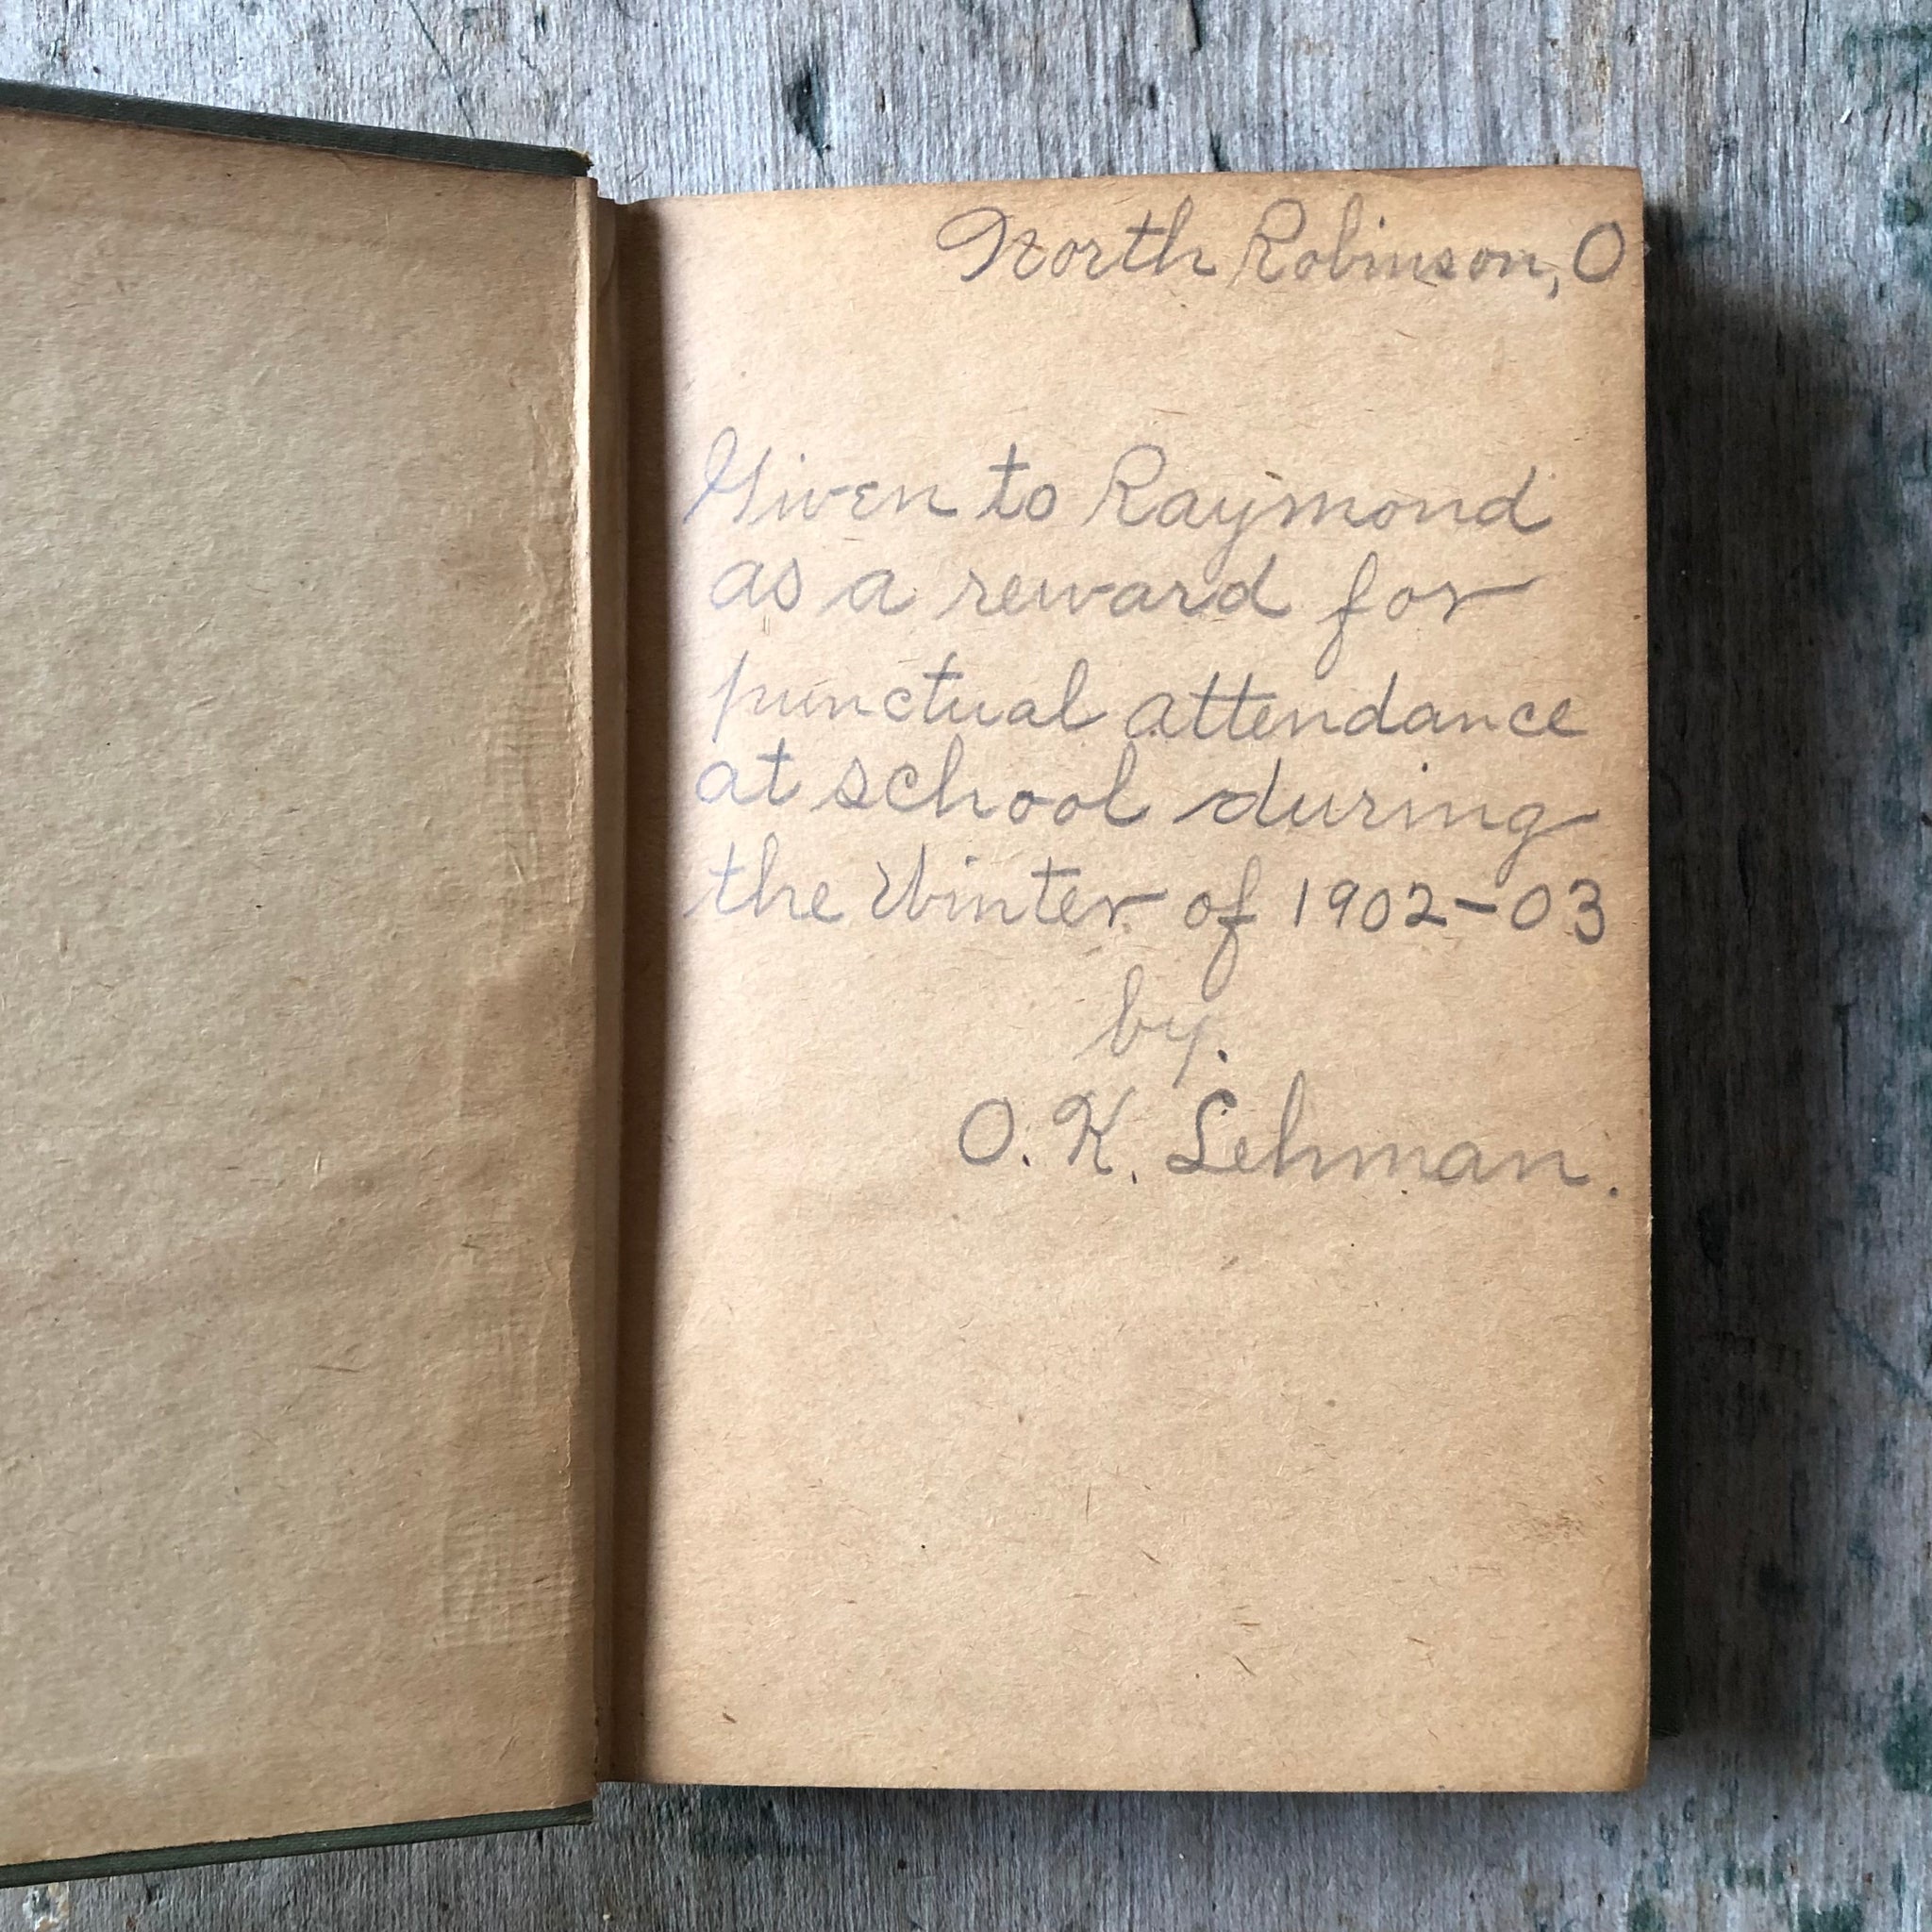 North Robinson, O
Given to Raymond
as a reward for
punctual attendance
at school during
the Winter of 1902-03
by.
O. K. Lehman.